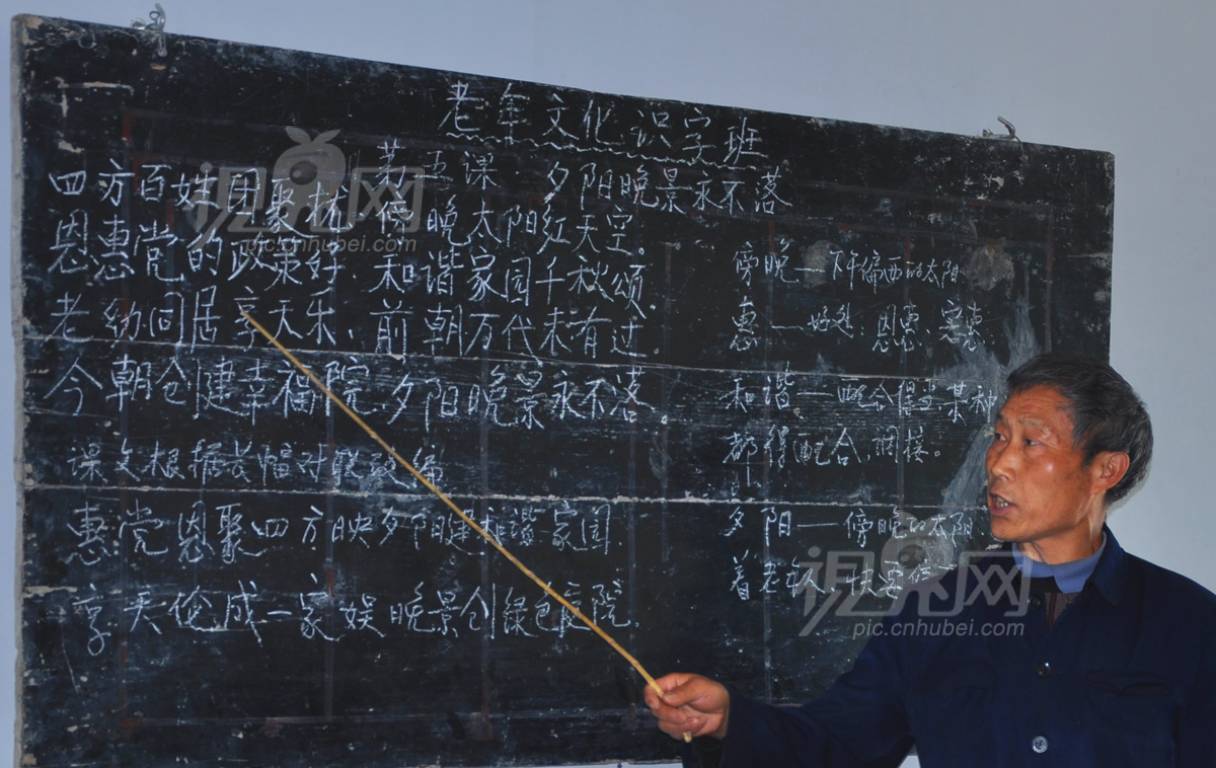 老年文化识字班
第五课 夕阳晚景永不落
四方百姓团聚梳 傍晚太阳红天空。
恩惠党的政策好 和谐家园千秋颂.
老幼同居享天乐、前朝万代未有过.
今朝创建幸福院 夕阳晚景永不落.
课文根据长幅对联改编
惠党恩聚四方映夕阳建和谐家园.
享天伦成一家娱晚景创绿色庭院.
傍晚——下午偏西的太阳
惠——好处：恩惠、实惠.
和谐——配合得 某种
都得配合,
夕阳——傍晚的太阳
着老年人,
视界网
pic.cnhubei.com
视界网
pic.cnhubei.com